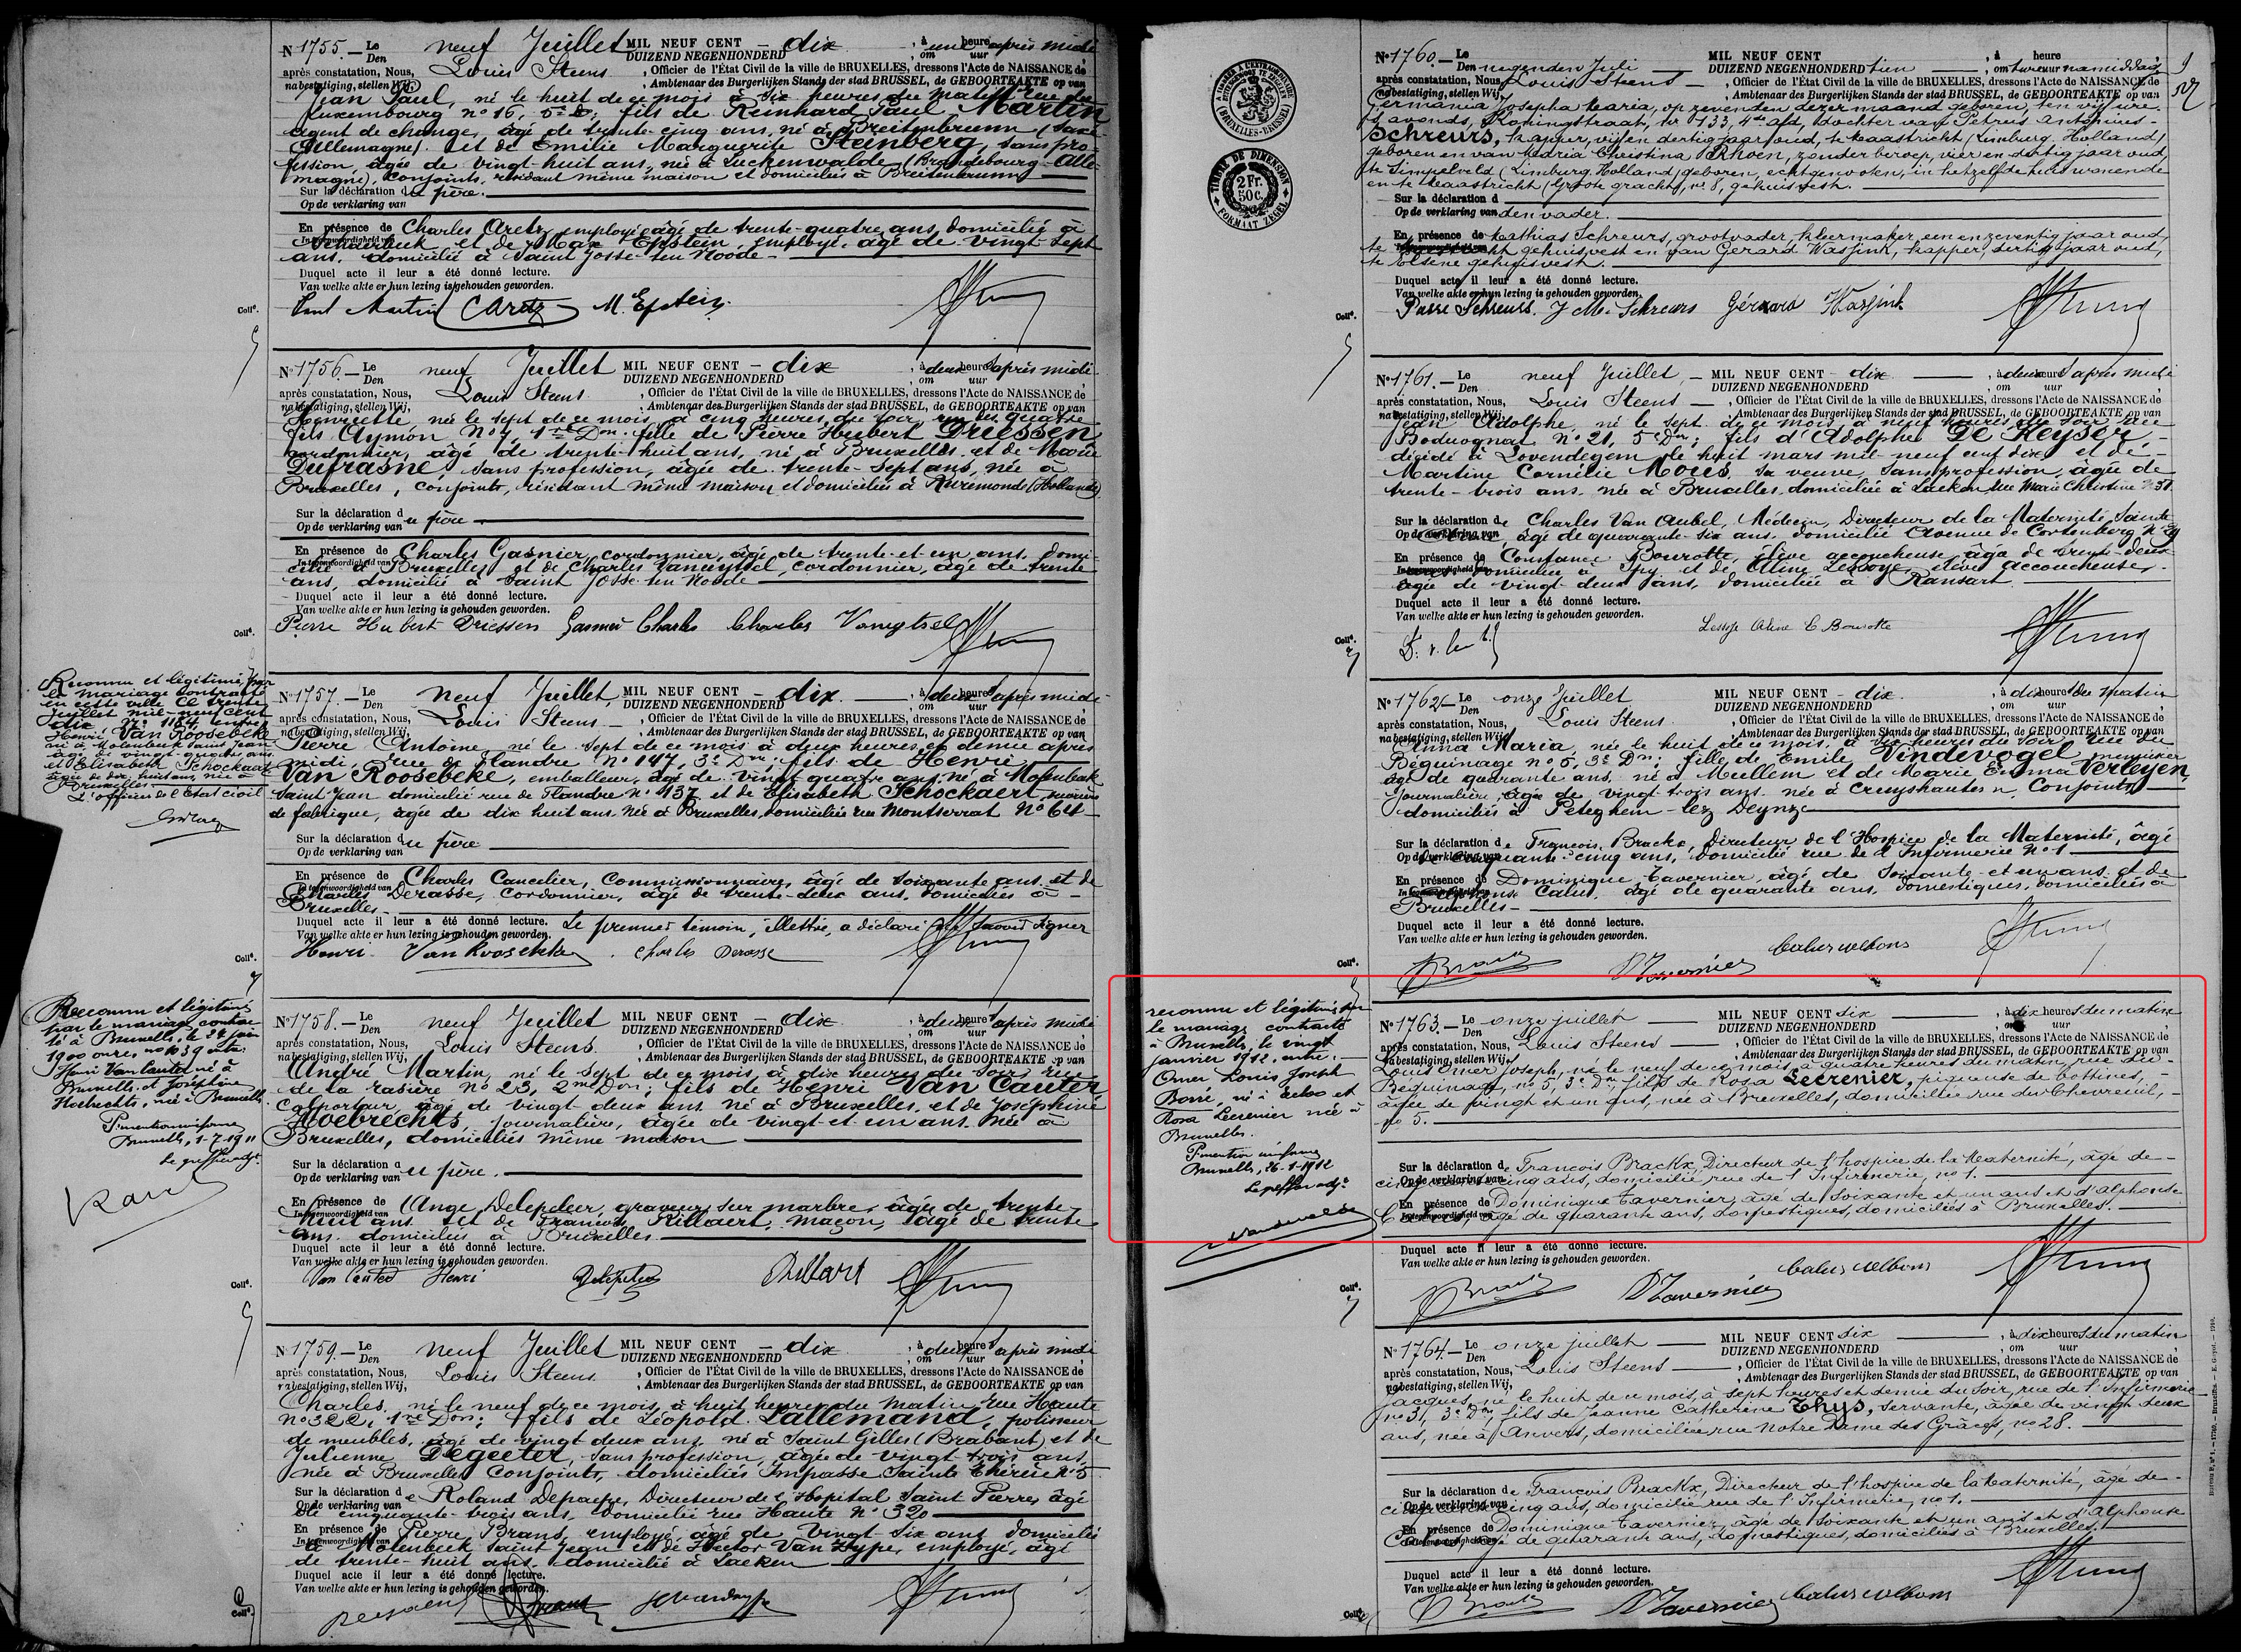 N° 1755. — Le Den neuf Juillet MIL NEUF CENT — dix , à une heure après midi
DUIZEND NEGENHONDERD , om uur
après constatation, Nous, Louis Steens , Officier de l'État Civil de la ville de BRUXELLES, dressons l'Acte de NAISSANCE de
na bestatiging, stellen Wij, , Ambtenaar des Burgerlijken Stands der stad BRUSSEL, de GEBOORTEAKTE op van
Jean Paul, né le huit de ce mois à six heures du matin, rue du
Luxembourg n° 16, 5e D; fils de Reinhard Paul Martin
agent de change, âgé de trente-cinq ans, né à Breitenbrunn (Saxe
Allemagne) et de Emilie Marguerite Steinberg, sans pro-
fession, âgée de vingt-huit ans, née à Luckenwalde (Brandebourg-Alle-
magne), conjoints, résidant même maison et domiciliés à Breitenbrunn
Sur la déclaration du père.
Op de verklaring van
En présence de Charles Aretz, employé, âgé de trente-quatre ans, domicilié à
In tegenwoordigheid van Schaerbeek et de Max Epstein, employé, âgé de vingt-sept
ans, domicilié à Saint Josse-ten-Noode
Duquel acte il leur a été donné lecture.
Van welke akte er hun lezing is gehouden geworden.
Paul Martin C Aretz M. Epstein
Coll°.
N° 1756. — Le Den neuf Juillet MIL NEUF CENT — dix , à deux heures après midi
DUIZEND NEGENHONDERD , om uur
après constatation, Nous, Louis Steens , Officier de l'État Civil de la ville de BRUXELLES, dressons l'Acte de NAISSANCE de
na bestatiging, stellen Wij, , Ambtenaar des Burgerlijken Stands der stad BRUSSEL, de GEBOORTEAKTE op van
Henriette, née le sept de ce mois à cinq heures du soir, rue des quatre
fils Aymon N° 4, 1re Don: fille de Pierre Hubert Driessen
cordonnier, âgé de trente-huit ans, né à Bruxelles et de Marie
Dufrasne sans profession, âgée de trente-sept ans, née à
Bruxelles, conjoints, résidant même maison et domiciliés à Ruremonde (Hollande)
Sur la déclaration du père
Op de verklaring van
En présence de Charles Gasnier, cordonnier, âgé de trente-et-un ans, domi-
In tegenwoordigheid van cilié à Bruxelles et de Charles Vaneytsel, cordonnier, âgé de trente
ans, domicilié à Saint Josse-ten-Noode
Duquel acte il leur a été donné lecture.
Van welke akte er hun lezing is gehouden geworden.
Pierre Hubert Driessen Gasnier Charles Charles Vaneytsel
Coll°.
Reconnu et légitimé par
le mariage contracté
en cette ville le trente
juillet mil-neuf cent
dix N° 1184 entre
Henri Van Roosebeke
né à Molenbeek Saint Jean
âgé de vingt-quatre ans
et Elisabeth Schockaert
âgée de dix-huit ans, née à
Bruxelles
L'officier de l'Etat civil
N° 1757. — Le Den neuf Juillet, MIL NEUF CENT — dix , à deux heures après midi
DUIZEND NEGENHONDERD , om uur
après constatation, Nous, Louis Steens , Officier de l'État Civil de la ville de BRUXELLES, dressons l'Acte de NAISSANCE de
na bestatiging, stellen Wij, , Ambtenaar des Burgerlijken Stands der stad BRUSSEL, de GEBOORTEAKTE op van
Pierre Antoine, né le sept de ce mois à deux heures et demie après
midi, rue de Flandre N° 147, 3e Don; fils de Henri
Van Roosebeke, emballeur, âgé de vingt quatre ans, né à Molenbeek
Saint Jean domicilié rue de Flandre N° 137 et de Elisabeth Schockaert, ouvrière
de fabrique, âgée de dix huit ans, née à Bruxelles, domiciliée rue Montserrat N° 64
Sur la déclaration du père
Op de verklaring van
En présence de Charles Cancelier, Commissionnaire, âgé de soixante ans et de
In tegenwoordigheid van Charles Derasse, Cordonnier, âgé de trente-deux ans, domiciliés à
Bruxelles
Duquel acte il leur a été donné lecture. Le premier témoin, illettré, a déclaré ne savoir signer
Van welke akte er hun lezing is gehouden geworden.
Henri Van Roosebeke Charles Derasse
Coll°.
Reconnu et légitimé
par le mariage contrac-
té à Bruxelles, le 24 juin
1900 onze, no 1039 entre
Henri Van Cauter né à
Bruxelles et Joséphine
Hoebrechts, née à Bruxelles
Pr mention uniforme
Bruxelles, 1-7-1911
Le greffier adjt.
N° 1758. — Le Den neuf Juillet MIL NEUF CENT — dix , à deux heures après midi
DUIZEND NEGENHONDERD , om uur
après constatation, Nous, Louis Steens , Officier de l'État Civil de la ville de BRUXELLES, dressons l'Acte de NAISSANCE de
na bestatiging, stellen Wij, , Ambtenaar des Burgerlijken Stands der stad BRUSSEL, de GEBOORTEAKTE op van
André Martin, né le sept de ce mois, à dix heures du soir, rue
de la rasière N° 23, 2me Don; fils de Henri Van Cauter
Colporteur, âgé de vingt deux ans, né à Bruxelles, et de Joséphine
Hoebrechts, journalière, âgée de vingt-et-un ans, née à
Bruxelles, domiciliés même maison
Sur la déclaration du père.
Op de verklaring van
En présence de Ange Delepeleer, graveur sur marbre, âgé de trente
In tegenwoordigheid van huit ans et de François Rillaert, maçon, âgé de trente
ans, domiciliés à Bruxelles
Duquel acte il leur a été donné lecture.
Van welke akte er hun lezing is gehouden geworden.
Van Cauter Henri
Coll°.
N° 1759. — Le Den neuf Juillet MIL NEUF CENT — dix , à deux heures après midi
DUIZEND NEGENHONDERD , om uur
après constatation, Nous, Louis Steens , Officier de l'État Civil de la ville de BRUXELLES, dressons l'Acte de NAISSANCE de
na bestatiging, stellen Wij, , Ambtenaar des Burgerlijken Stands der stad BRUSSEL, de GEBOORTEAKTE op van
Charles, né le neuf de ce mois, à huit heures du matin, rue Haute
N° 322, 1re Don; fils de Léopold Lallemand, polisseur
de meubles, âgé de vingt deux ans, né à Saint Gilles (Brabant) et de
Julienne Degeeter, sans profession, âgée de vingt-trois ans,
née à Bruxelles Conjoints, domiciliés Impasse Sainte Thérèse N° 5
Sur la déclaration de Roland Depaepe, Directeur de l'Hopital Saint Pierre, âgé
Op de verklaring van de cinquante-trois ans, domicilié rue Haute N° 320
En présence de Pierre Brans, employé, âgé de vingt-six ans, domicilié
In tegenwoordigheid van à Molenbeek Saint Jean et de Hector Van Hype, employé, âgé
de trente-huit ans, domicilié à Laeken
Duquel acte il leur a été donné lecture.
Van welke akte er hun lezing is gehouden geworden.
Coll°.
TIMBRE DE DIMENSION
2 Fr.
50 c.
FORMAAT ZEGEL
N° 1760. — Le Den negenden Juli MIL NEUF CENT , à heure
DUIZEND NEGENHONDERD tien , om twee uur namiddag
après constatation, Nous, Louis Steens , Officier de l'État Civil de la ville de BRUXELLES, dressons l'Acte de NAISSANCE de
na bestatiging, stellen Wij, , Ambtenaar des Burgerlijken Stands der stad BRUSSEL, de GEBOORTEAKTE op van
Germania Josepha Maria, op zevenden dezer maand geboren, ten vijf ure
's avonds, Koningstraat, nr 133, 4de afd, dochter van Petrus Antonius
Schreurs, kapper, vijf en dertig jaar oud, te Maastricht (Limburg, Holland)
geboren en van Maria Christina Rhoen, zonder beroep, vier en dertig jaar oud,
te Simpelveld (Limburg, Holland) geboren, echtgenooten, in hetzelfde huis wonende
en te Maastricht (Groote gracht) nr 8, gehuisvest.
Sur la déclaration d
Op de verklaring van den vader.
En présence de Mathias Schreurs, grootvader, kleermaker, een en zeventig jaar oud,
te Maastricht gehuisvest en van Gerard Wassink, kapper, dertig jaar oud,
te Elsene gehuisvest.
Duquel acte il leur a été donné lecture.
Van welke akte er hun lezing is gehouden geworden.
Pierre Schreurs. J M. Schreurs Gérard Wassink
Coll°.
N° 1761. — Le Den neuf Juillet, — MIL NEUF CENT — dix , à deux heures après midi
DUIZEND NEGENHONDERD , om uur
après constatation, Nous, Louis Steens , Officier de l'État Civil de la ville de BRUXELLES, dressons l'Acte de NAISSANCE de
na bestatiging, stellen Wij, , Ambtenaar des Burgerlijken Stands der stad BRUSSEL, de GEBOORTEAKTE op van
Jean Adolphe, né le sept de ce mois à neuf heures du soir rue
Boduognat N° 21, 5e Don; fils d'Adolphe De Keyser,
décédé à Lovendegem, le huit mars mil-neuf cent dix, et de
Martine Cornélie Moues, sa veuve, sans profession, âgée de
trente-trois ans, née à Bruxelles, domiciliée à Laeken, rue Marie Christine N° 51
Sur la déclaration de Charles Van Aubel, Médecin, Directeur de la Maternité Sainte
Op de verklaring van Anne âgé de quarante-six ans, domicilié Avenue de Cortenberg
En présence de Constance Bourotte, élève accoucheuse, âgée de trente-deux
In tegenwoordigheid van ans, domiciliée à Spy et de Aline Lessoye, élève accoucheuse,
âgée de vingt-deux ans, domiciliée à Ransart
Duquel acte il leur a été donné lecture.
Van welke akte er hun lezing is gehouden geworden.
Lessoye Aline C Bourotte
Coll°.
N° 1762. — Le Den onze Juillet MIL NEUF CENT — dix , à dix heures du matin
DUIZEND NEGENHONDERD , om uur
après constatation, Nous, Louis Steens , Officier de l'État Civil de la ville de BRUXELLES, dressons l'Acte de NAISSANCE de
na bestatiging, stellen Wij, , Ambtenaar des Burgerlijken Stands der stad BRUSSEL, de GEBOORTEAKTE op van
Anna Maria, née le huit de ce mois, à six heures du soir, rue du
Béguinage n° 5, 3e Don; fille de Emile Vindevogel, menuisier
âgé de quarante ans, né à Mullem et de Marie Emma Verleyen,
journalière, âgée de vingt-trois ans, née à Cruyshautem, Conjoints
domiciliés à Peteghem-lez Deynze
Sur la déclaration de François Brackx, Directeur de l'Hospice de la Maternité, âgé
Op de verklaring van de cinquante-cinq ans, domicilié rue de l'Infirmerie N° 1
En présence de Dominique Tavernier, âgé de soixante-et-un ans et de
In tegenwoordigheid van Alphonse Calus, âgé de quarante ans, domestiques, domiciliés à
Bruxelles
Duquel acte il leur a été donné lecture.
Van welke akte er hun lezing is gehouden geworden.
Brackx DTavernier Calus Alfons
Coll°.
reconnu et légitimé par
le mariage contracté
à Bruxelles, le vingt
janvier 1912, entre:
Omer Louis Joseph
Borré, né à Eeloo et
Rosa Lecrenier née à
Bruxelles.
Pr mention uniforme
Bruxelles, 26-1-1912
Le greffier adjt
Vandevelde
N° 1763. — Le Den onze juillet MIL NEUF CENT dix , à dix heures du matin
DUIZEND NEGENHONDERD , om uur
après constatation, Nous, Louis Steens , Officier de l'État Civil de la ville de BRUXELLES, dressons l'Acte de NAISSANCE de
na bestatiging, stellen Wij, , Ambtenaar des Burgerlijken Stands der stad BRUSSEL, de GEBOORTEAKTE op van
Louis Omer Joseph, né le neuf de ce mois, à quatre heures du matin, rue du
Béguinage, no 5, 3e Don, fils de Rosa Lecrenier, piqueuse de bottines,
âgée de vingt et un ans, née à Bruxelles, domiciliée rue du Chevreuil,
no 5.
Sur la déclaration de François Brackx, Directeur de l'hospice de la Maternité, âgé de
Op de verklaring van cinquante cinq ans, domicilié rue de l'Infirmerie, no 1.
En présence de Dominique Tavernier, âgé de soixante et un ans et d'Alphonse
In tegenwoordigheid van Calus, âgé de quarante ans, domestiques, domiciliés à Bruxelles.
Duquel acte il leur a été donné lecture.
Van welke akte er hun lezing is gehouden geworden.
Brackx DTavernier Calus Alfons
Coll°.
N° 1764. — Le Den onze juillet MIL NEUF CENT dix , à dix heures du matin
DUIZEND NEGENHONDERD , om uur
après constatation, Nous, Louis Steens , Officier de l'État Civil de la ville de BRUXELLES, dressons l'Acte de NAISSANCE de
na bestatiging, stellen Wij, , Ambtenaar des Burgerlijken Stands der stad BRUSSEL, de GEBOORTEAKTE op van
Jacques, né le huit de ce mois, à sept heures et demie du soir, rue de l'Infirmerie
no 31, 3e Don, fils de Jeanne Catherine Thys, servante, âgée de vingt deux
ans, née à Anvers, domiciliée rue Notre Dame des Grâces, no 28.
Sur la déclaration de François Brackx, Directeur de l'hospice de la Maternité, âgé de
Op de verklaring van cinquante cinq ans, domicilié rue de l'Infirmerie, no 1.
En présence de Dominique Tavernier, âgé de soixante et un ans et d'Alphonse
Calus, âgé de quarante ans, domestiques, domiciliés à Bruxelles.
Duquel acte il leur a été donné lecture.
Van welke akte er hun lezing is gehouden geworden.
Brackx DTavernier Calus Alfons
Coll°.